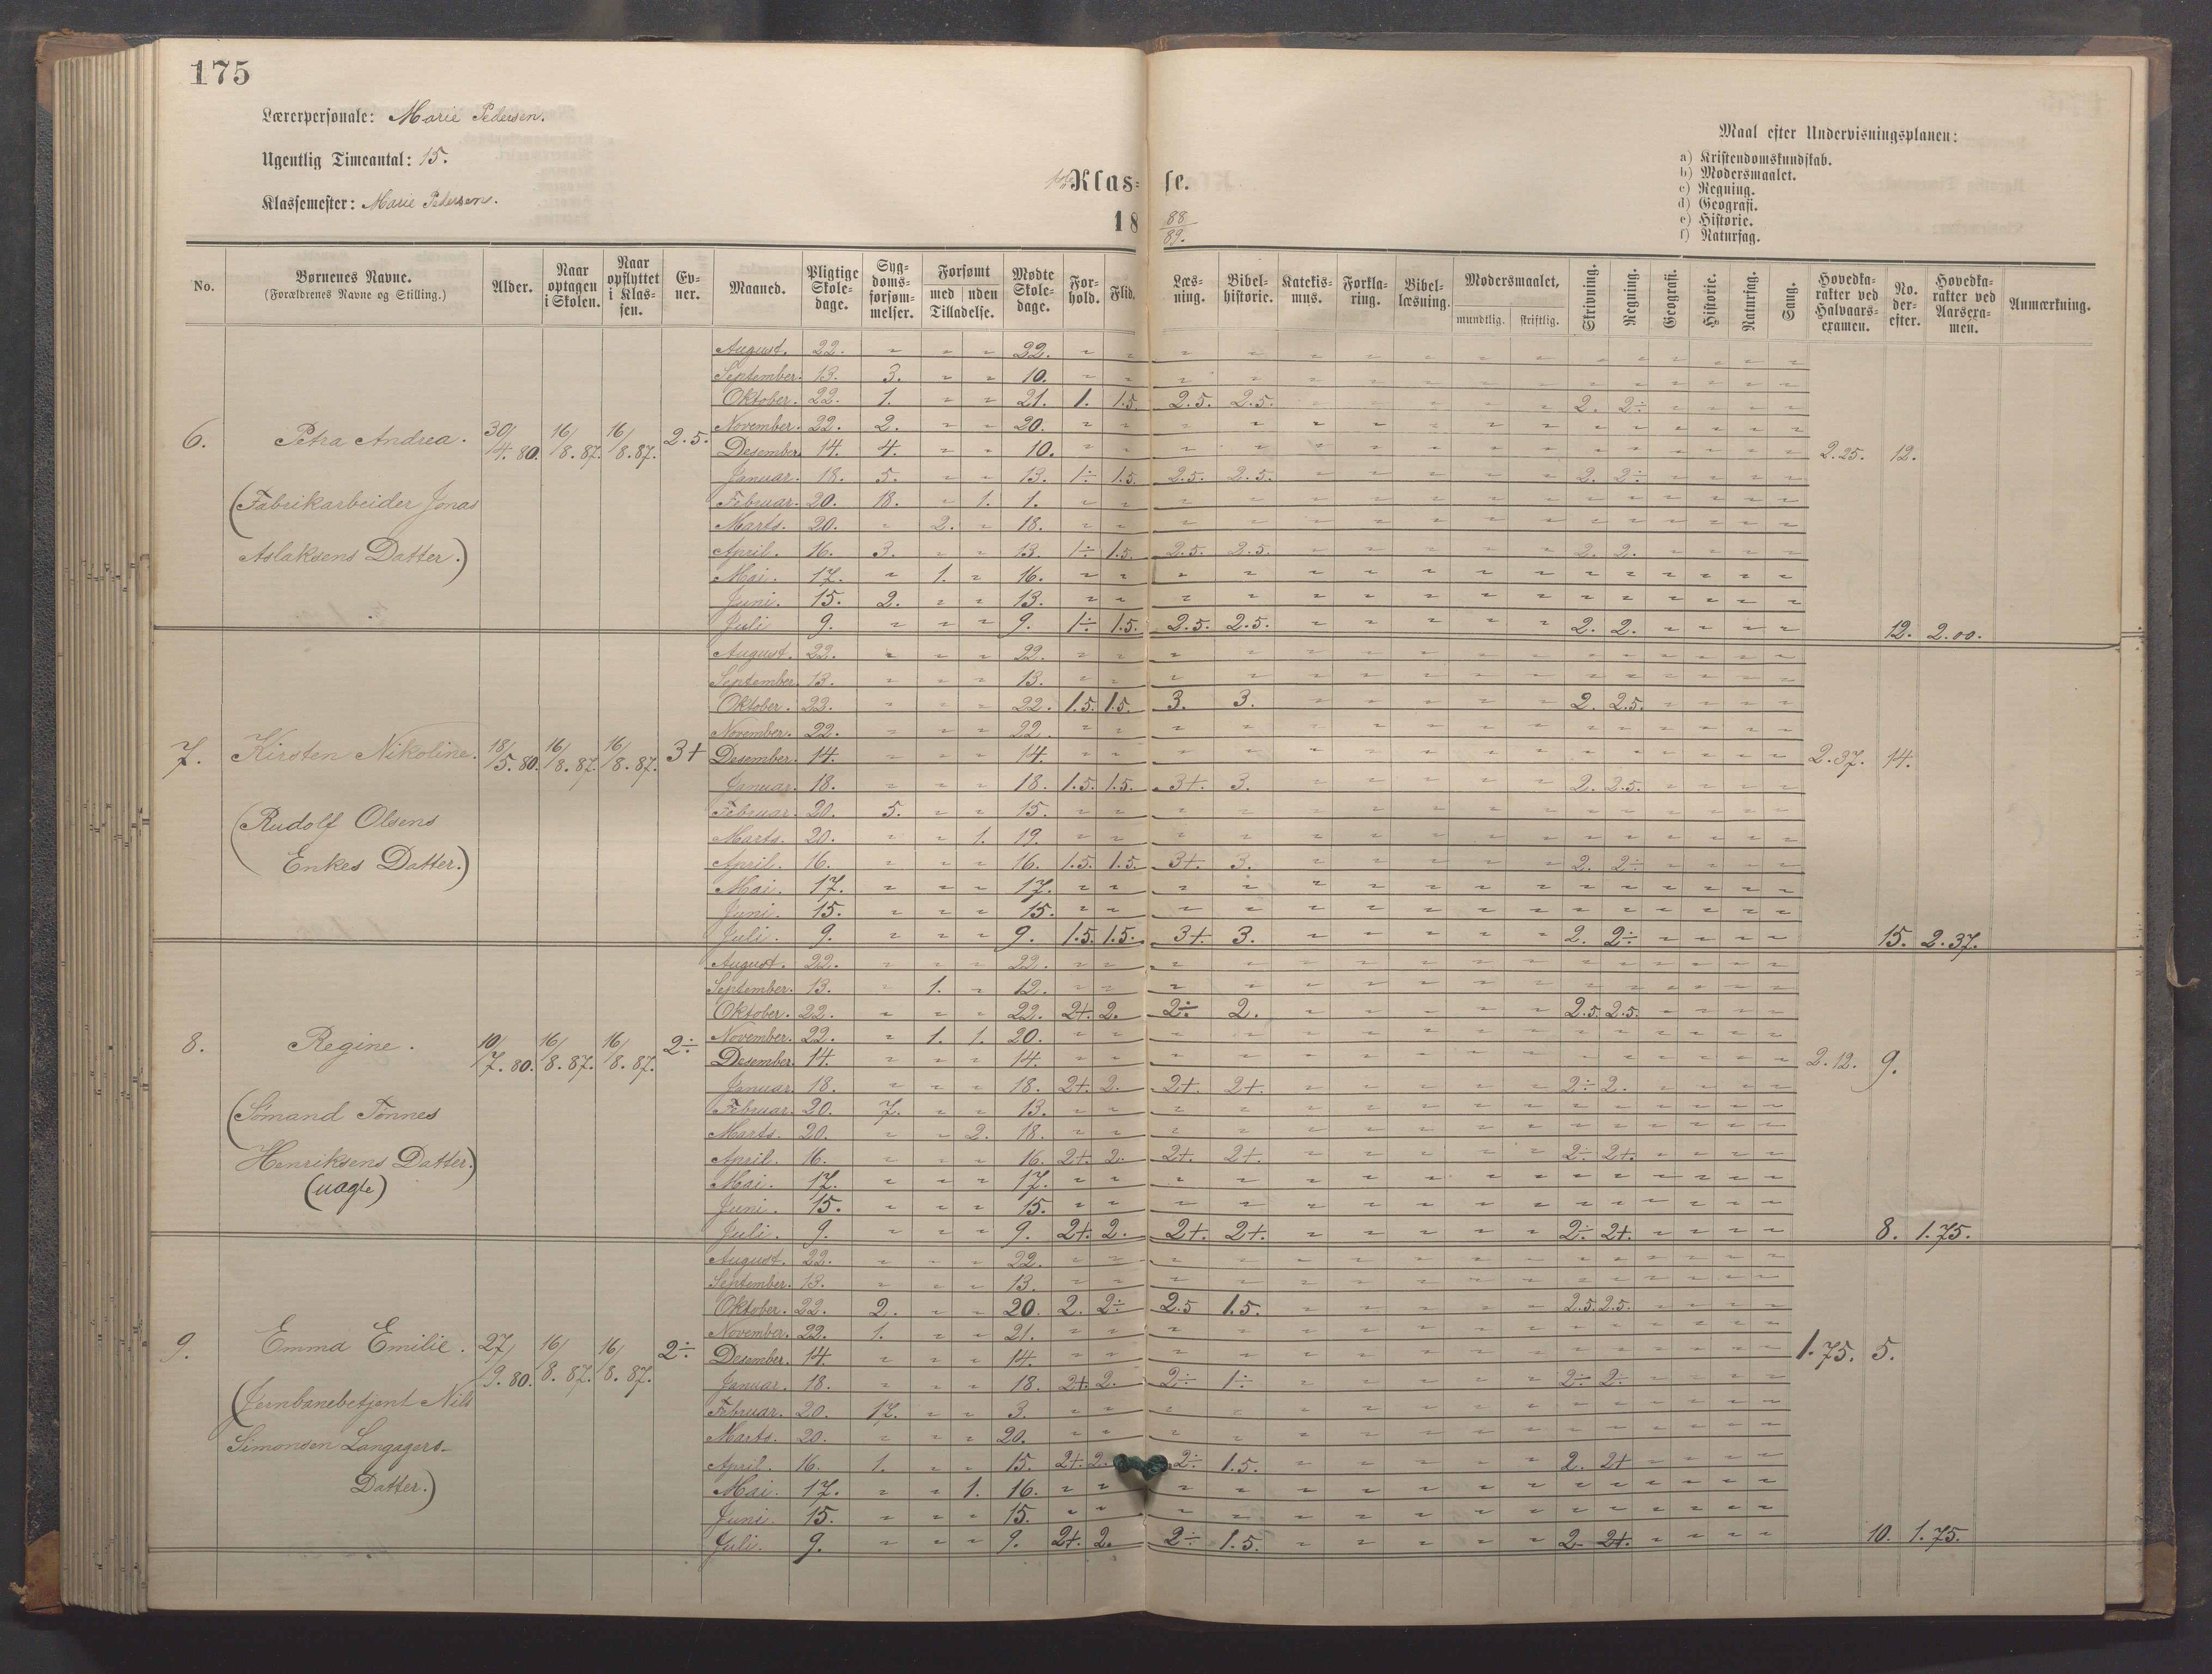 175
Lærerpersonale: Marie Pedersen.
Ugentlig Timeantal: 15.
Klassemester: Marie Pedersen.
Klasse.
18 88/89.
Maal efter Undervisningsplanen:
a) Kristendomskundskab.
b) Modersmaalet.
c) Regning.
d) Geografi.
e) Historie.
f) Naturfag.
No. Børnenes Navne. (Forældrenes Navne og Stilling.) Alder. Naar optagen i Skolen. Naar opflyttet i Klassen. Evner. Maaned. Pligtige Skoledage. Sygdomsforsømmelser. Forsømt med uden Tilladelse. Mødte Skoledage. Forhold. Flid. Læsning. Bibelhistorie. Katekismus. Forklaring. Bibellæsning. Modersmaalet, mundtlig. skriftlig. Skrivning. Regning. Geografi. Historie. Naturfag. Sang. Hovedkarakter ved Halvaarsexamen. No. derefter. Hovedkarakter ved Aarsexamen. Anmærkning.
6. Petra Andrea. 30/4. 80. 16/8. 87. 16/8. 87. 2.5. 2.25. 12.
(Fabrikarbeider Jonas
Aslaksens Datter.)
August. 22. " " " 22. " "
September. 13. 3. " " 10. " "
Oktober. 22. 1. " " 21. 1. 1.5. 2.5. 2.5. 2. 2÷
November. 22. 2. " " 20. " "
Desember. 14. 4. " " 10. " "
Januar. 18. 5. " " 13. 1÷ 1.5. 2.5. 2.5. 2. 2÷
Februar. 20. 18. " 1. 1. " "
Marts. 20. " 2. " 18. " "
April. 16. 3. " " 13. 1÷ 1.5. 2.5. 2.5. 2. 2.
Mai. 17. " 1. " 16. " "
Juni. 15. 2. " " 13. " "
Juli 9. " " " 9. 1÷ 1.5. 2.5. 2.5. 2. 2. 12. 2.00.
7. Kirsten Nikoline. 18/5. 80. 16/8. 87. 16/8. 87. 3+ 2.37. 14.
(Rudolf Olsens
Enkes Datter.)
August. 22. " " " 22. " "
September. 13. " " " 13. " "
Oktober. 22. " " " 22. 1.5. 1.5. 3. 3. 2. 2.5.
November. 22. " " " 22. " "
Desember. 14. " " " 14. " "
Januar. 18. " " " 18. 1.5. 1.5. 3+. 3. 2. 2.5.
Februar. 20. 5. " " 15. " "
Marts. 20. " " 1. 19. " "
April. 16. " " " 16. 1.5. 1.5. 3+. 3. 2. 2÷
Mai. 17. " " " 17. " "
Juni. 15. " " " 15. " "
Juli. 9. " " " 9. 1.5. 1.5. 3+. 3. 2. 2÷ 15. 2.37.
8. Regine. 10/7. 80. 16/8. 87. 16/8. 87. 2÷ 2.12. 9.
(Sömand Tönnes
Henriksens Datter.)
(uagte)
August. 22. " " " 22. " "
September. 13. " 1. " 12. " "
Oktober. 22. " " " 22. 2+. 2. 2÷ 2. 2.5. 2.5.
November. 22. " 1. 1. 20. " "
Desember. 14. " " " 14. " "
Januar. 18. " " " 18. 2+. 2. 2+. 2+. 2÷ 2.
Februar. 20. 7. " " 13. " "
Marts. 20. " " 2. 18. " "
April. 16. " " " 16. 2+. 2. 2+. 2+. 2÷ 2+.
Mai. 17. " " " 17. " "
Juni. 15. " " " 15. " "
Juli. 9. " " " 9. 2+. 2. 2+. 2+. 2÷ 2+. 8. 1.75.
9. Emma Emilie. 27/9. 80. 16/8. 87. 16/8. 87. 2÷ 1.75. 5.
(Jernbanebetjent Nils
Simonsen Langagers-
Datter.)
August. 22. " " " 22. " "
September. 13. " " " 13. " "
Oktober. 22. 2. " " 20. 2. 2÷ 2.5 1.5. 2.5. 2.5.
November. 22. 1. " " 21. " "
Desember. 14. " " " 14. " "
Januar. 18. " " " 18. 2+. 2. 2÷ 1÷ 2÷ 2÷
Februar. 20. 17. " " 3. " "
Marts. 20. " " " 20. " "
April. 16. 1. " " 15. 2+. 2. 2÷ 1.5. 2. 2+
Mai. 17. " " 1. 16. " "
Juni. 15. " " " 15. " "
Juli. 9. " " " 9. 2+. 2. 2÷ 1.5. 2. 2+. 10. 1.75.